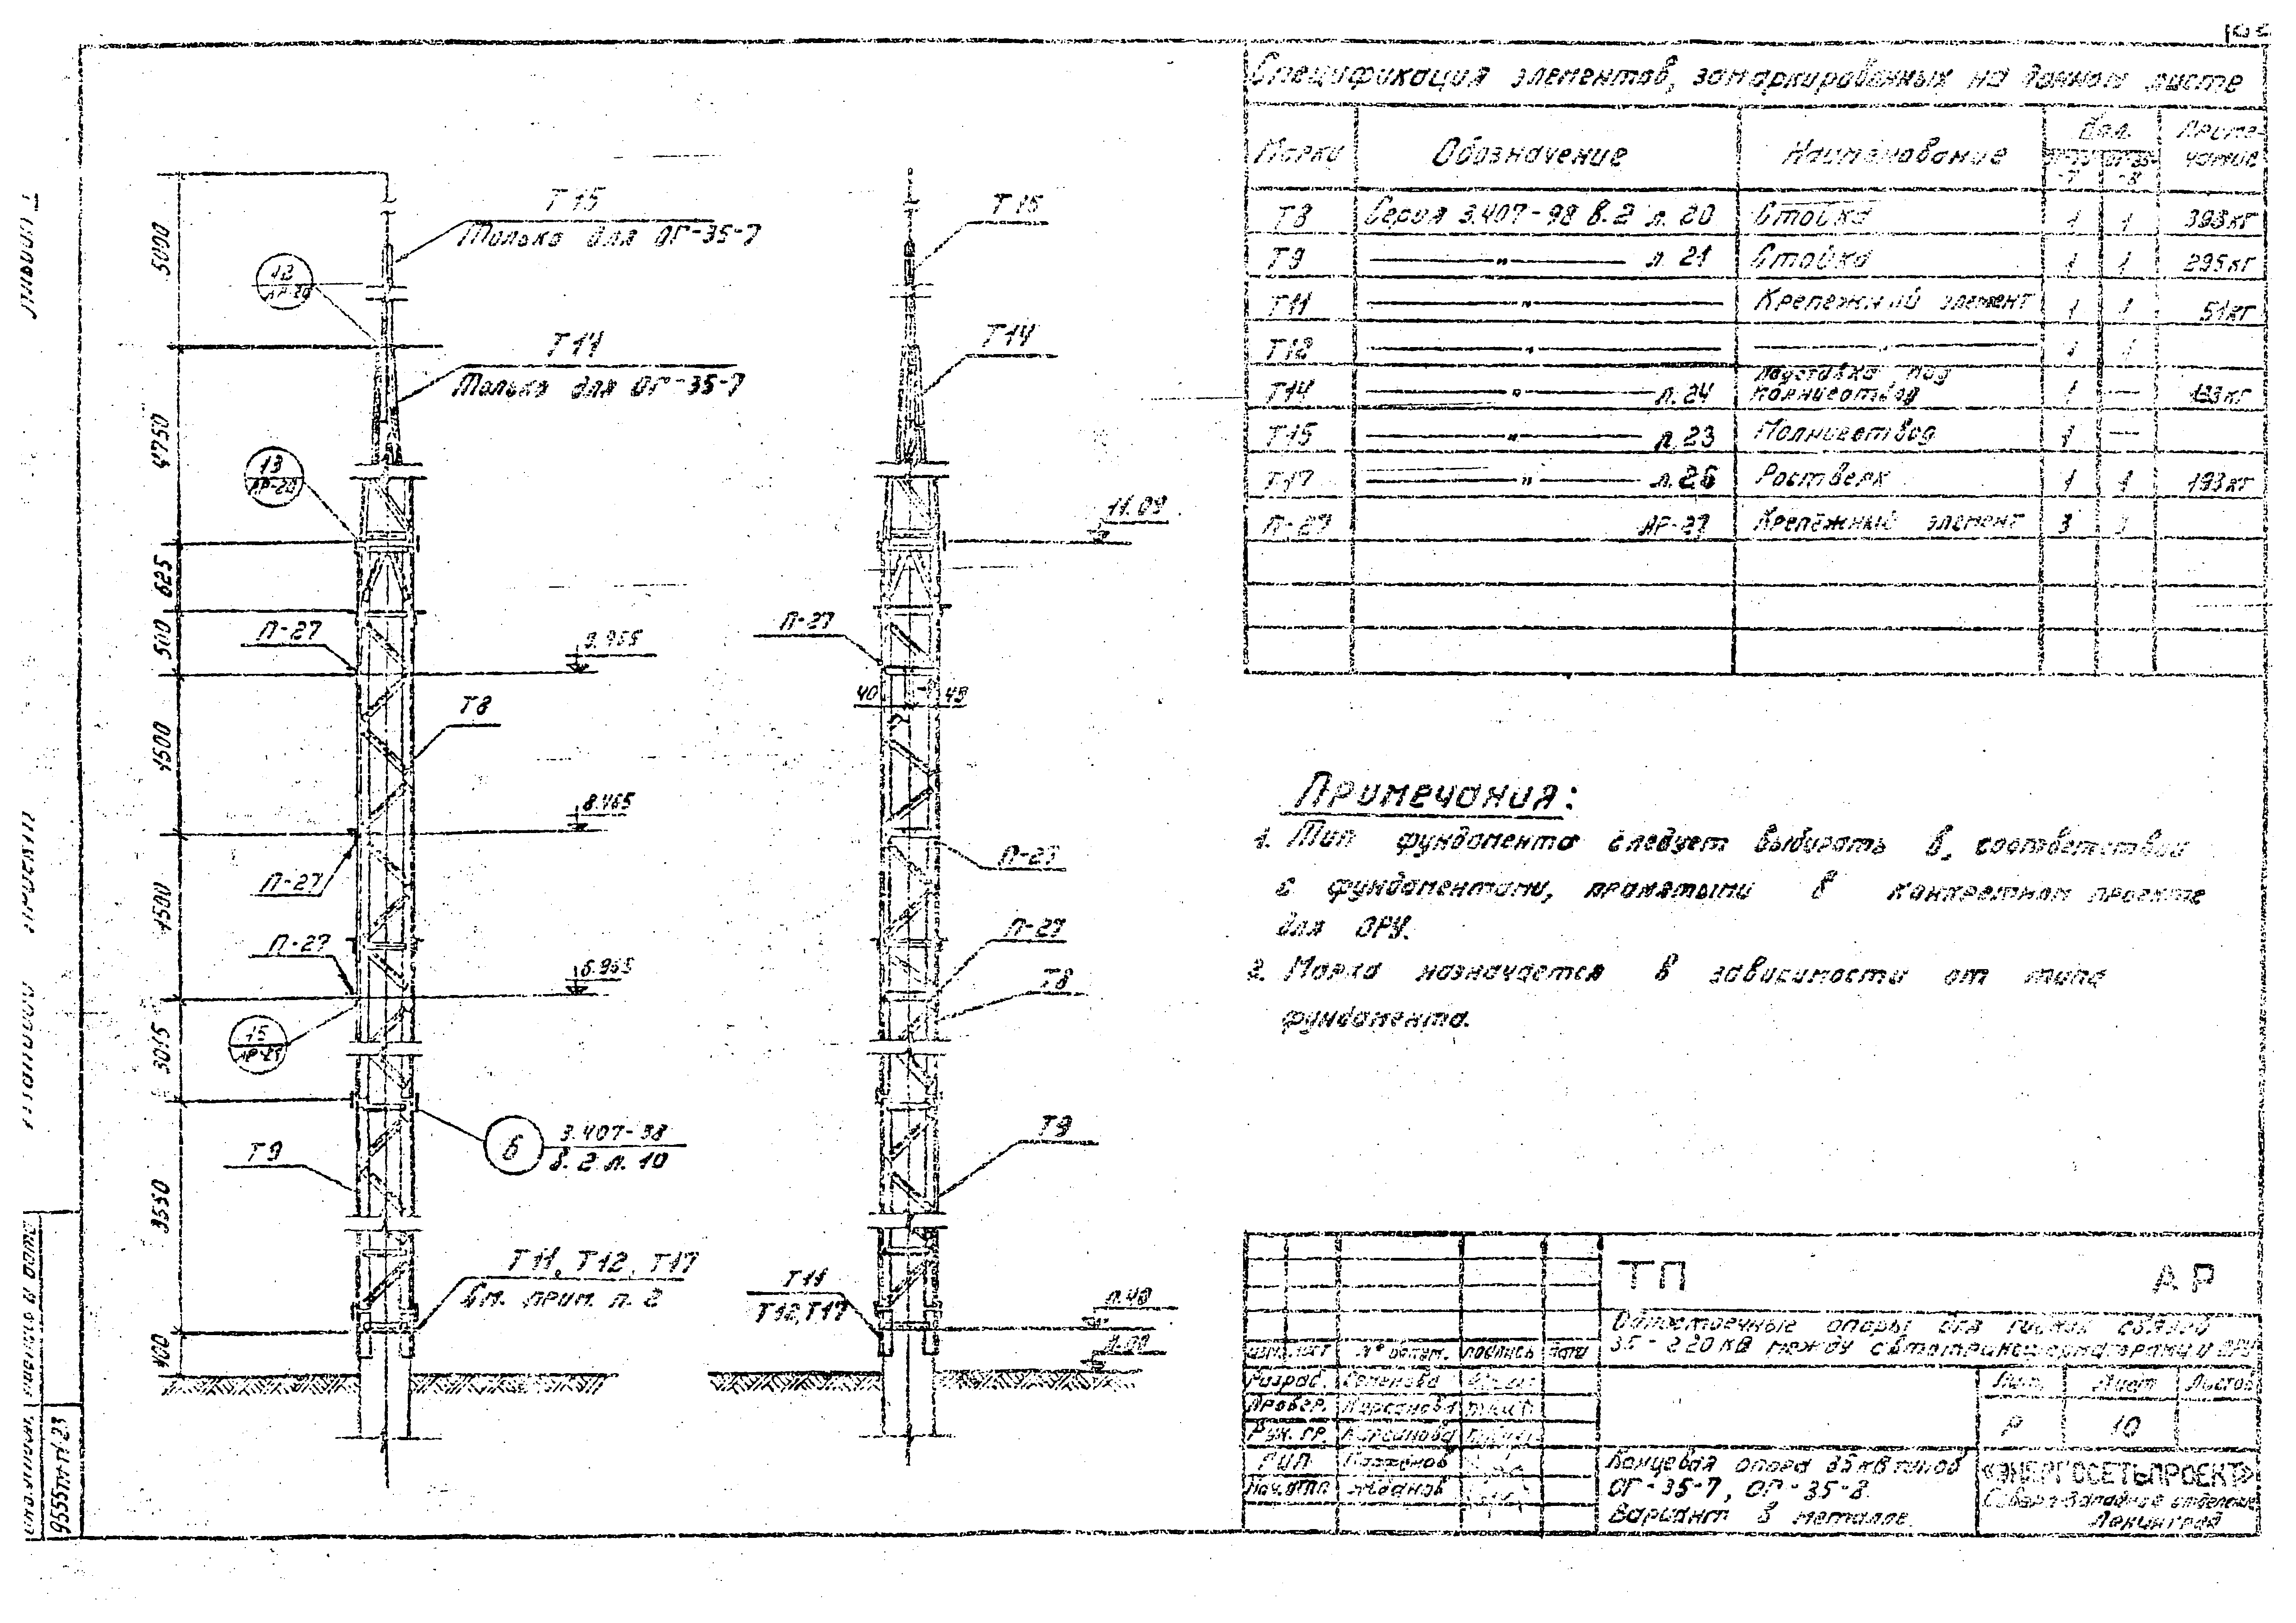 Спецификация элементов, замаркированных на данном листе
Марки Обозначение Наименование Кол. Приме-чание
-7 -8
Т8 Серия 3.407-98 в.2 л. 20 Стойка 1 1 393кг
Т9 —"— л. 21 Стойка 1 1 295кг
Т11 —"— Крепежный элемент 1 1 51кг
Т12 —"— —"— 1 1
Т14 —"— л.24 Подставка под молниеотвод 1 —
Т15 —"— л.23 Молниеотвод 1 —
Т17 —"— л.26 Ростверк 1 1 193кг
П-27 АР-27 Крепёжный элемент 3 3
Примечания:
1. Тип фундамента следует выбирать в соответствии
с фундаментами, принятыми в конкретном проекте
для ОРУ.
2. Марка назначается в зависимости от типа
фундамента.
5000
4750
625
500
1500
1500
3015
3550
400
Т15
Только для ОГ-35-7
12
АР-20
Т14
Только для ОГ-35-7
13
АР-20
П-27
9.965
Т8
8.465
П-27
П-27
6.965
15
Т9
6
3.407-98
в.2 л. 10
Т11, Т12, Т17
См. прим. п. 2
Т15
Т14
11.09
П-27
40
П-27
П-27
Т8
Т9
Т11
Т12,Т17
0.40
0.00
ТП АР
Одностоечные опоры для гибкой связи
35-220кв между автотрансформаторами и ОРУ
№ докум. подпись дата
Разраб. Семенова
Провер. Кирсанова
Рук. гр. Кирсанова
ГИП
Нач.ОТП Жданов
Лит. Лист Листов
Р 10
Концевая опора 35кв типов
ОГ-35-7, ОГ-35-8.
Вариант в металле.
«ЭНЕРГОСЕТЬПРОЕКТ»
Северо-Западное отделение
Ленинград
подпись и дата
9555тм-т1/23